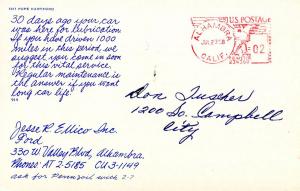 30 days ago your car
was here for lubrication
If you did driven 1000
miles in this period, we
suggest you come in soon
for this vital service.
Regular maintenance is
the answer if you want
long car life!
Jesse R. Ellico Inc.
Ford
330 W. Valley Blvd, Alhambra.
Phones: AT 2-5185 CU 3-1149
ask for Pennzoil with Z-7
ALHAMBRA
CALIF.
U.S. POSTAGE
02
Don Tuscher
1200 So. Campbell
City